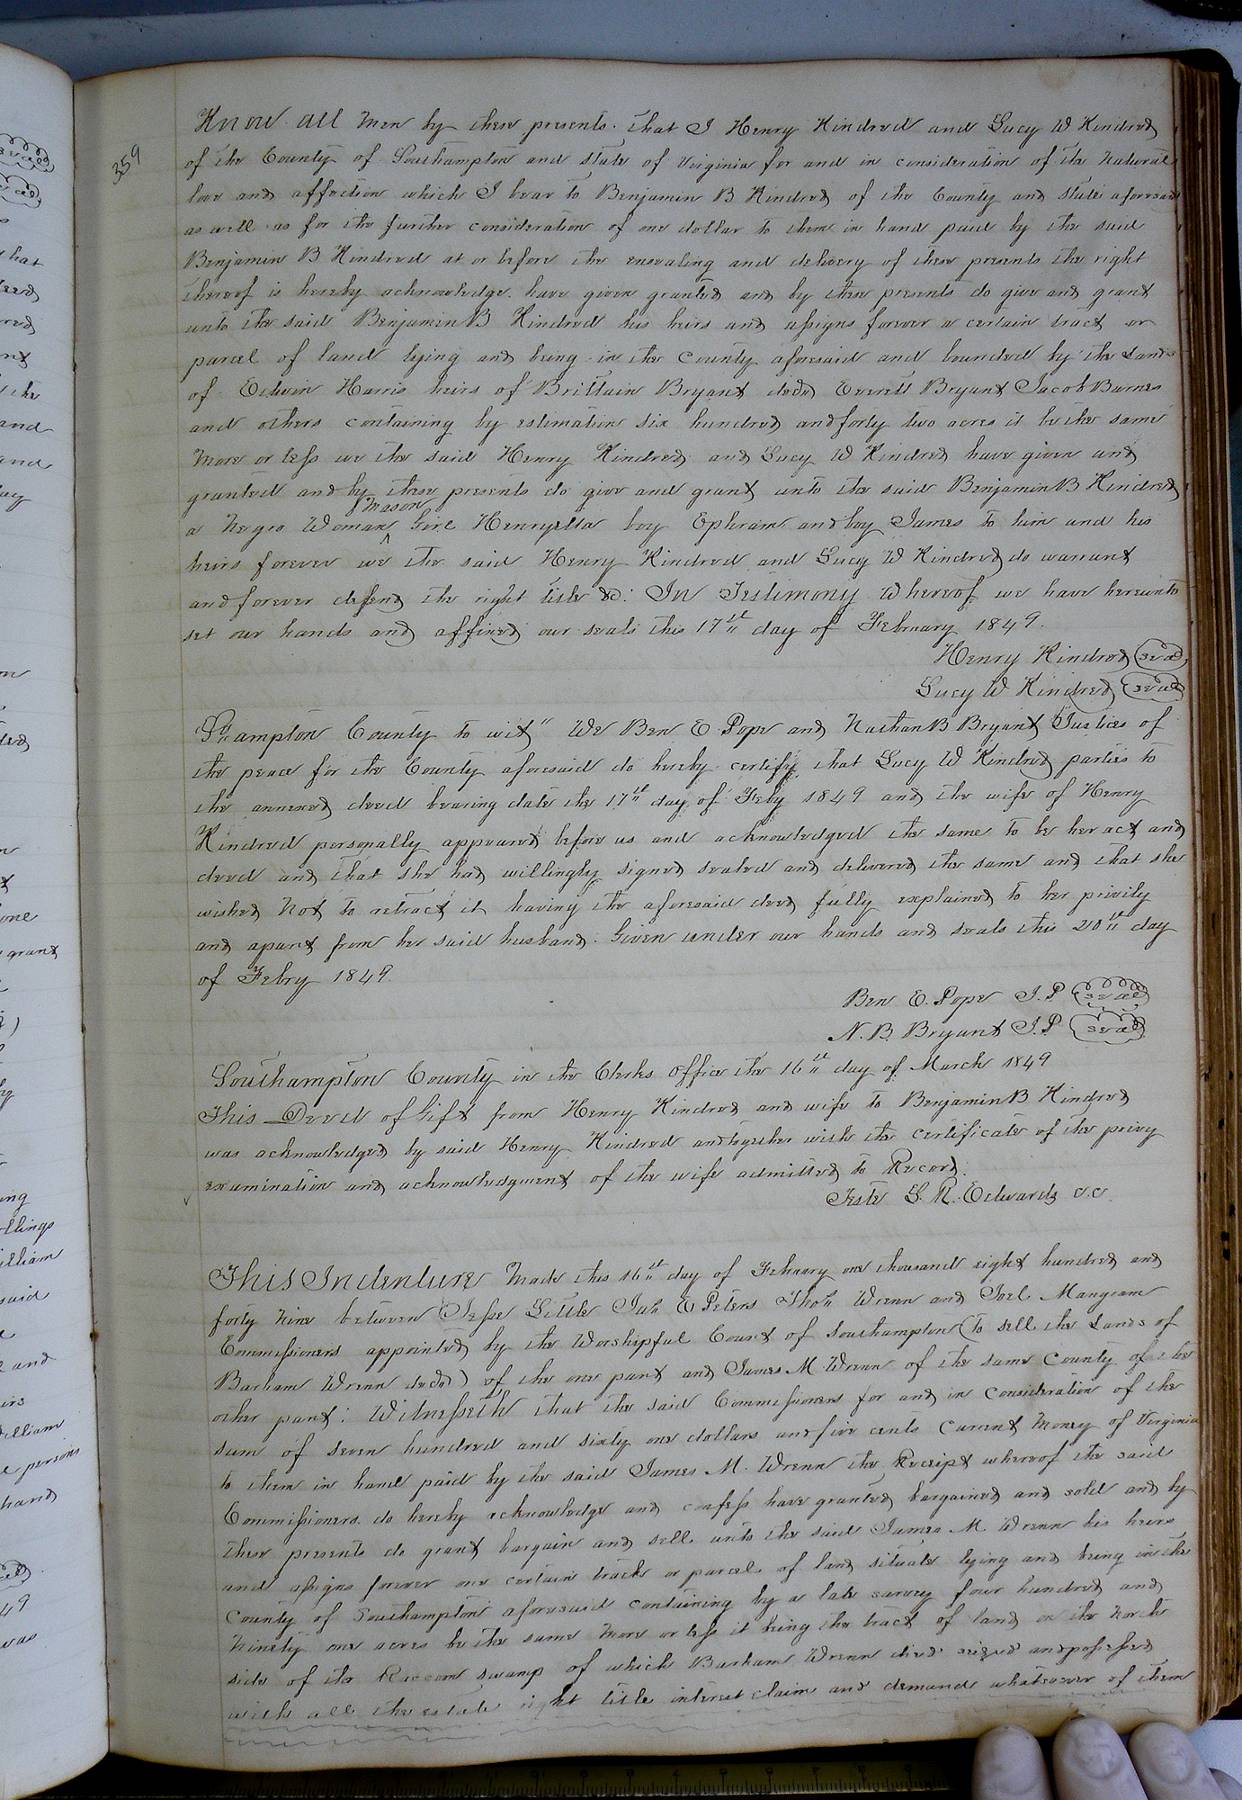 359
Know all Men by these presents. that I Henry Kindred and Lucy W Kindred
of the County of Southampton and state of Virginia for and in consideration of the Natural
love and affection which I bear to Benjamin B Kindred of the County and State aforesaid
as well as for the further consideration of one dollar to them in hand paid by the said
Benjamin B Kindred at or before the ensealing and delivery of these presents the right
thereof is hereby acknowledge. have given granted and by these presents do give and grant
unto the said Benjamin B Kindred his heirs and assigns forever a certain tract or
parcel of land lying and being in the County aforesaid and bounded by the Lands
of Edwin Harris heirs of Brittain Bryant decd Everett Bryant Jacob Barnes
and others containing by estimation six hundred and forty two acres it be the same
More or less we the said Henry Kindred and Lucy W Kindred have given and
granted and by these presents do give and grant unto the said Benjamin B Kindred
Mason
a Negro Woman Girl Henryetta boy Ephram and boy James to him and his
heirs forever we the said Henry Kindred and Lucy W Kindred do warrant
and forever defend the right title &c: In Testimony Whereof we have hereunto
set our hands and affixed our seals this 17th day of February 1849.
Henry Kindred seal
Lucy W Kindred seal
S.hampton County to wit" We Ben E Pope and Nathan B Bryant Justices of
the peace for the County aforesaid do hereby certify that Lucy W Kindred parties to
the annexed deed bearing date the 17th day of Feby 1849 and the wife of Henry
Kindred personally appeared before us and acknowledged the same to be her act and
deed and that she had willingly signed sealed and delivered the same and that she
wished Not to retract it having the aforesaid deed fully explained to her privily
and apart from her said husband. Given under our hands and seals this 20th day
of Febry 1849
Ben E. Pope J.P seal
N. B. Bryant J.P seal
Southampton County in the Clerks Office the 16th day of March 1849
This Deed of Gift from Henry Kindred and wife to Benjamin B Kindred
was acknowledged by said Henry Kindred and together with the certificate of the privy
examination and acknowledgment of the wife admitted to Record.
Teste L. R. Edwards c.c.
This Indenture Made this 16th day of February one thousand eight hundred and
forty Nine between Jesse Little Jno E Peters Thos Wrenn and Joel Mangram
Commissioners appointed by the Worshipful Court of Southampton (to sell the Lands of
Barham Wrenn decd) of the one part and James M Wrenn of the same County of the
other part: Witnesseth that the said Commissioners for and in consideration of the
sum of seven hundred and sixty one dollars and five cents Current Money of Virginia
to them in hand paid by the said James M. Wrenn the Receipt whereof the said
Commissioners do hereby acknowledge and confess have granted bargained and sold and by
these presents do grant bargain and sell unto the said James M Wrenn his heirs
and assigns forever one certain track or parcel of land situate lying and being in the
County of Southampton aforesaid containing by a late survey four hundred and
Ninety one acres be the same More or less it being the tract of land on the North
side of the Raccoon swamp of which Barham Wrenn died seized and possessed
with all the estate right title interest claim and demand whatsoever of them